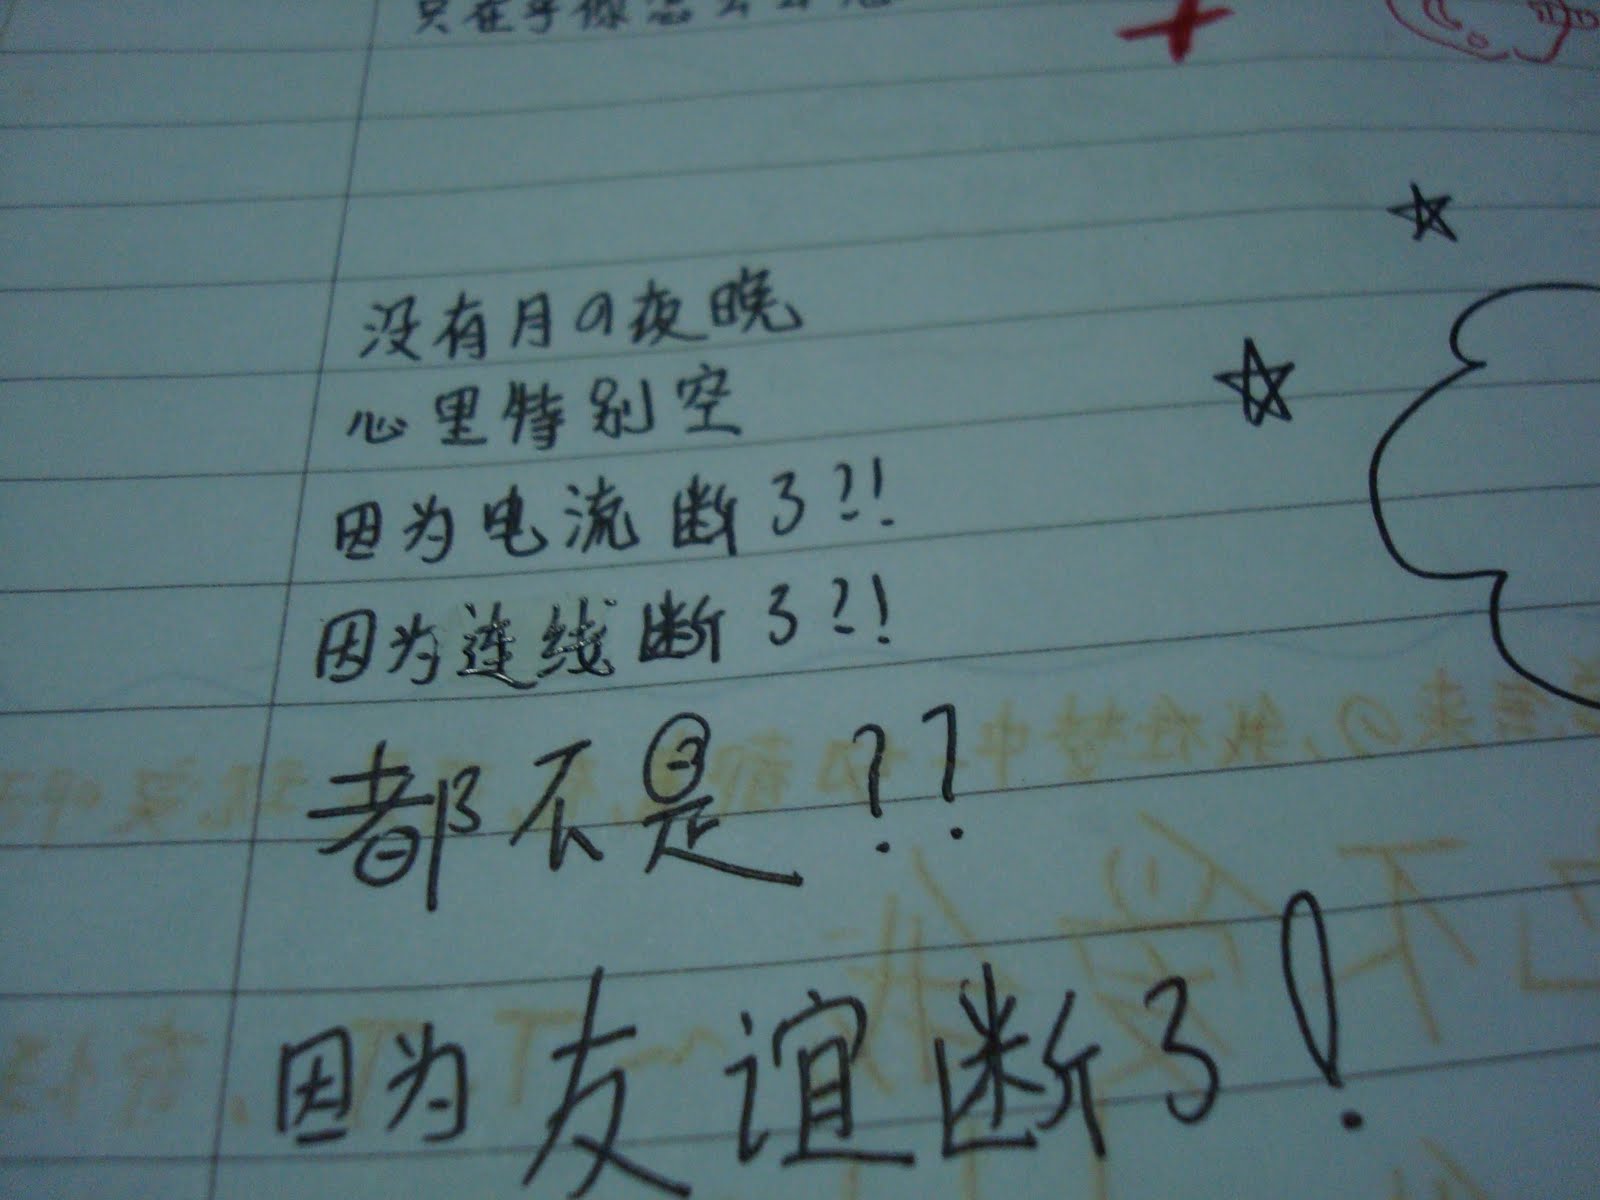 只在乎你怎么
没有月の夜晚
心里特别空
因为电流断了?!
因为连线断了?!
都不是??
因为友谊断了!